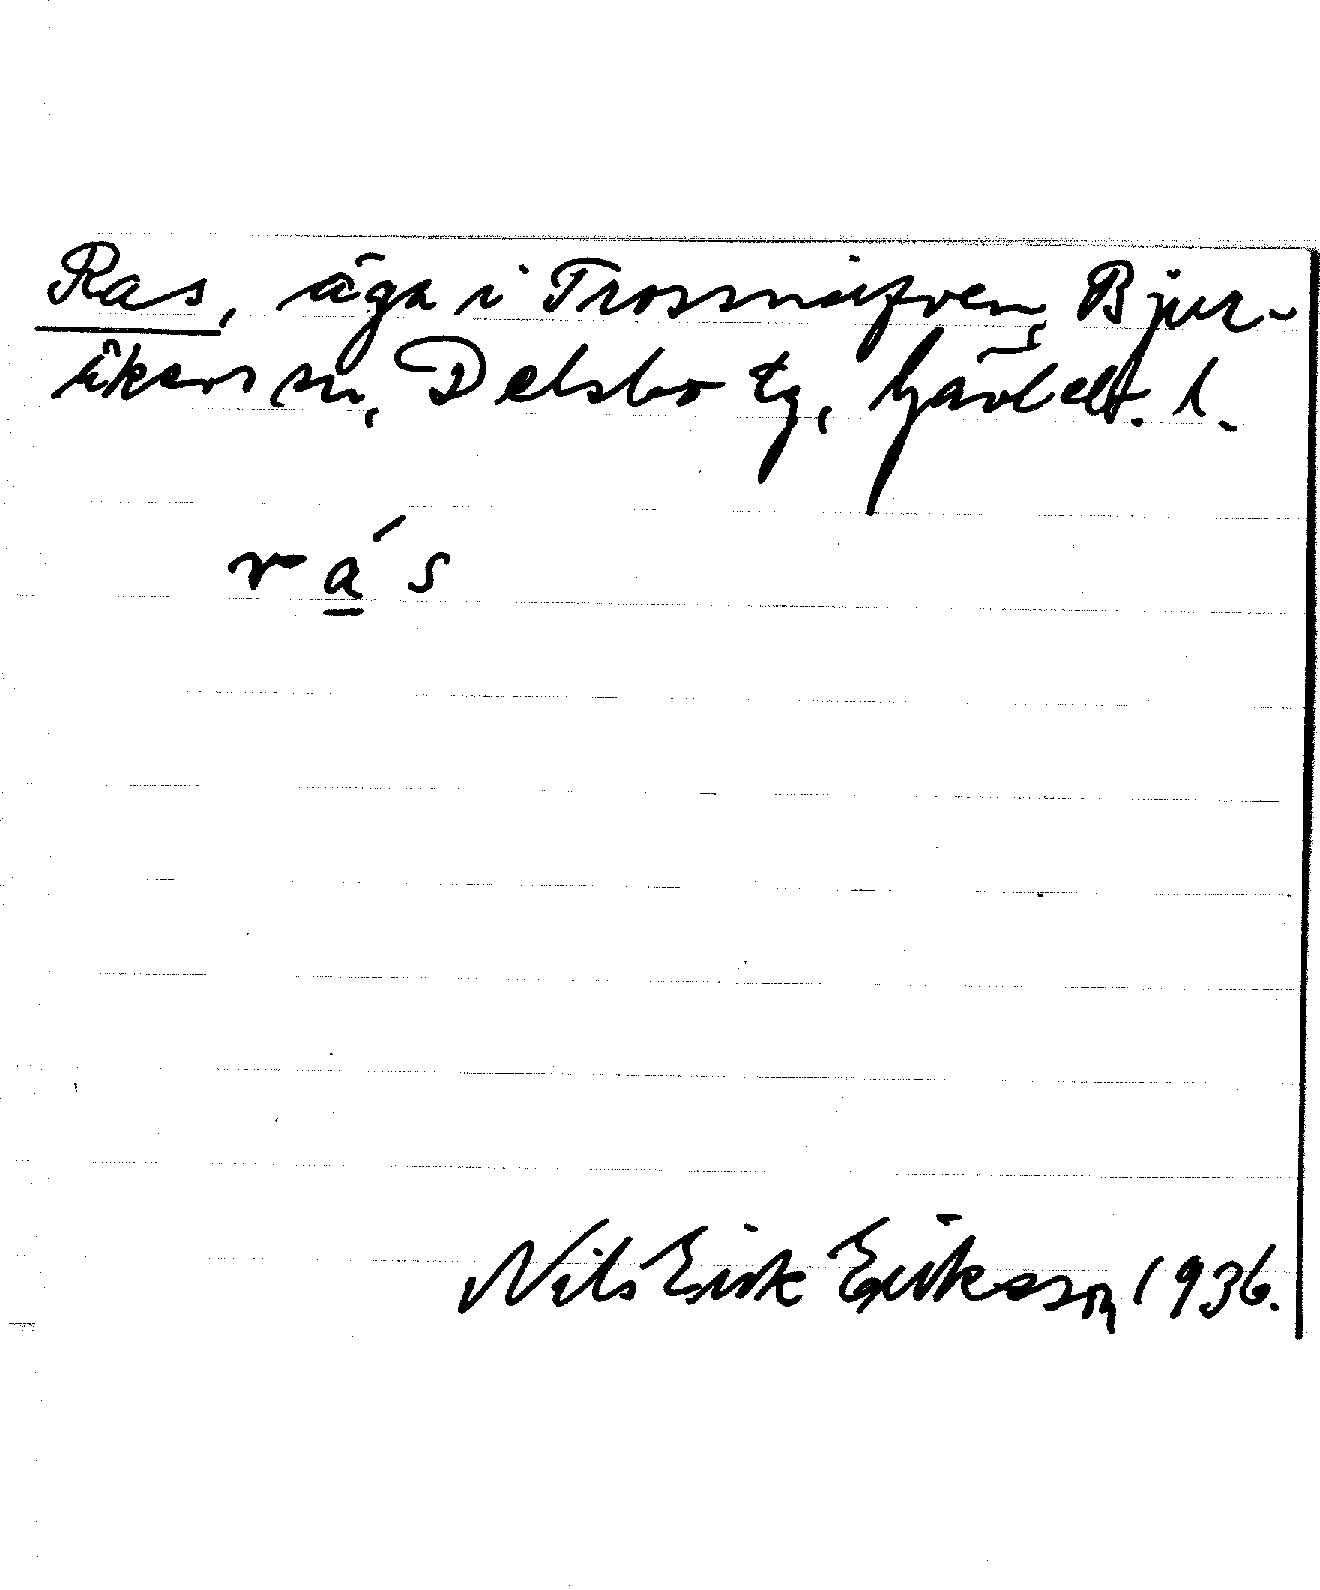 Ras, äga i Trossnarfven, Bjur-
åkers sn, Delsbo tg, Gävleb. l.
rá̱s
Nils Erik Eriksson 1936.